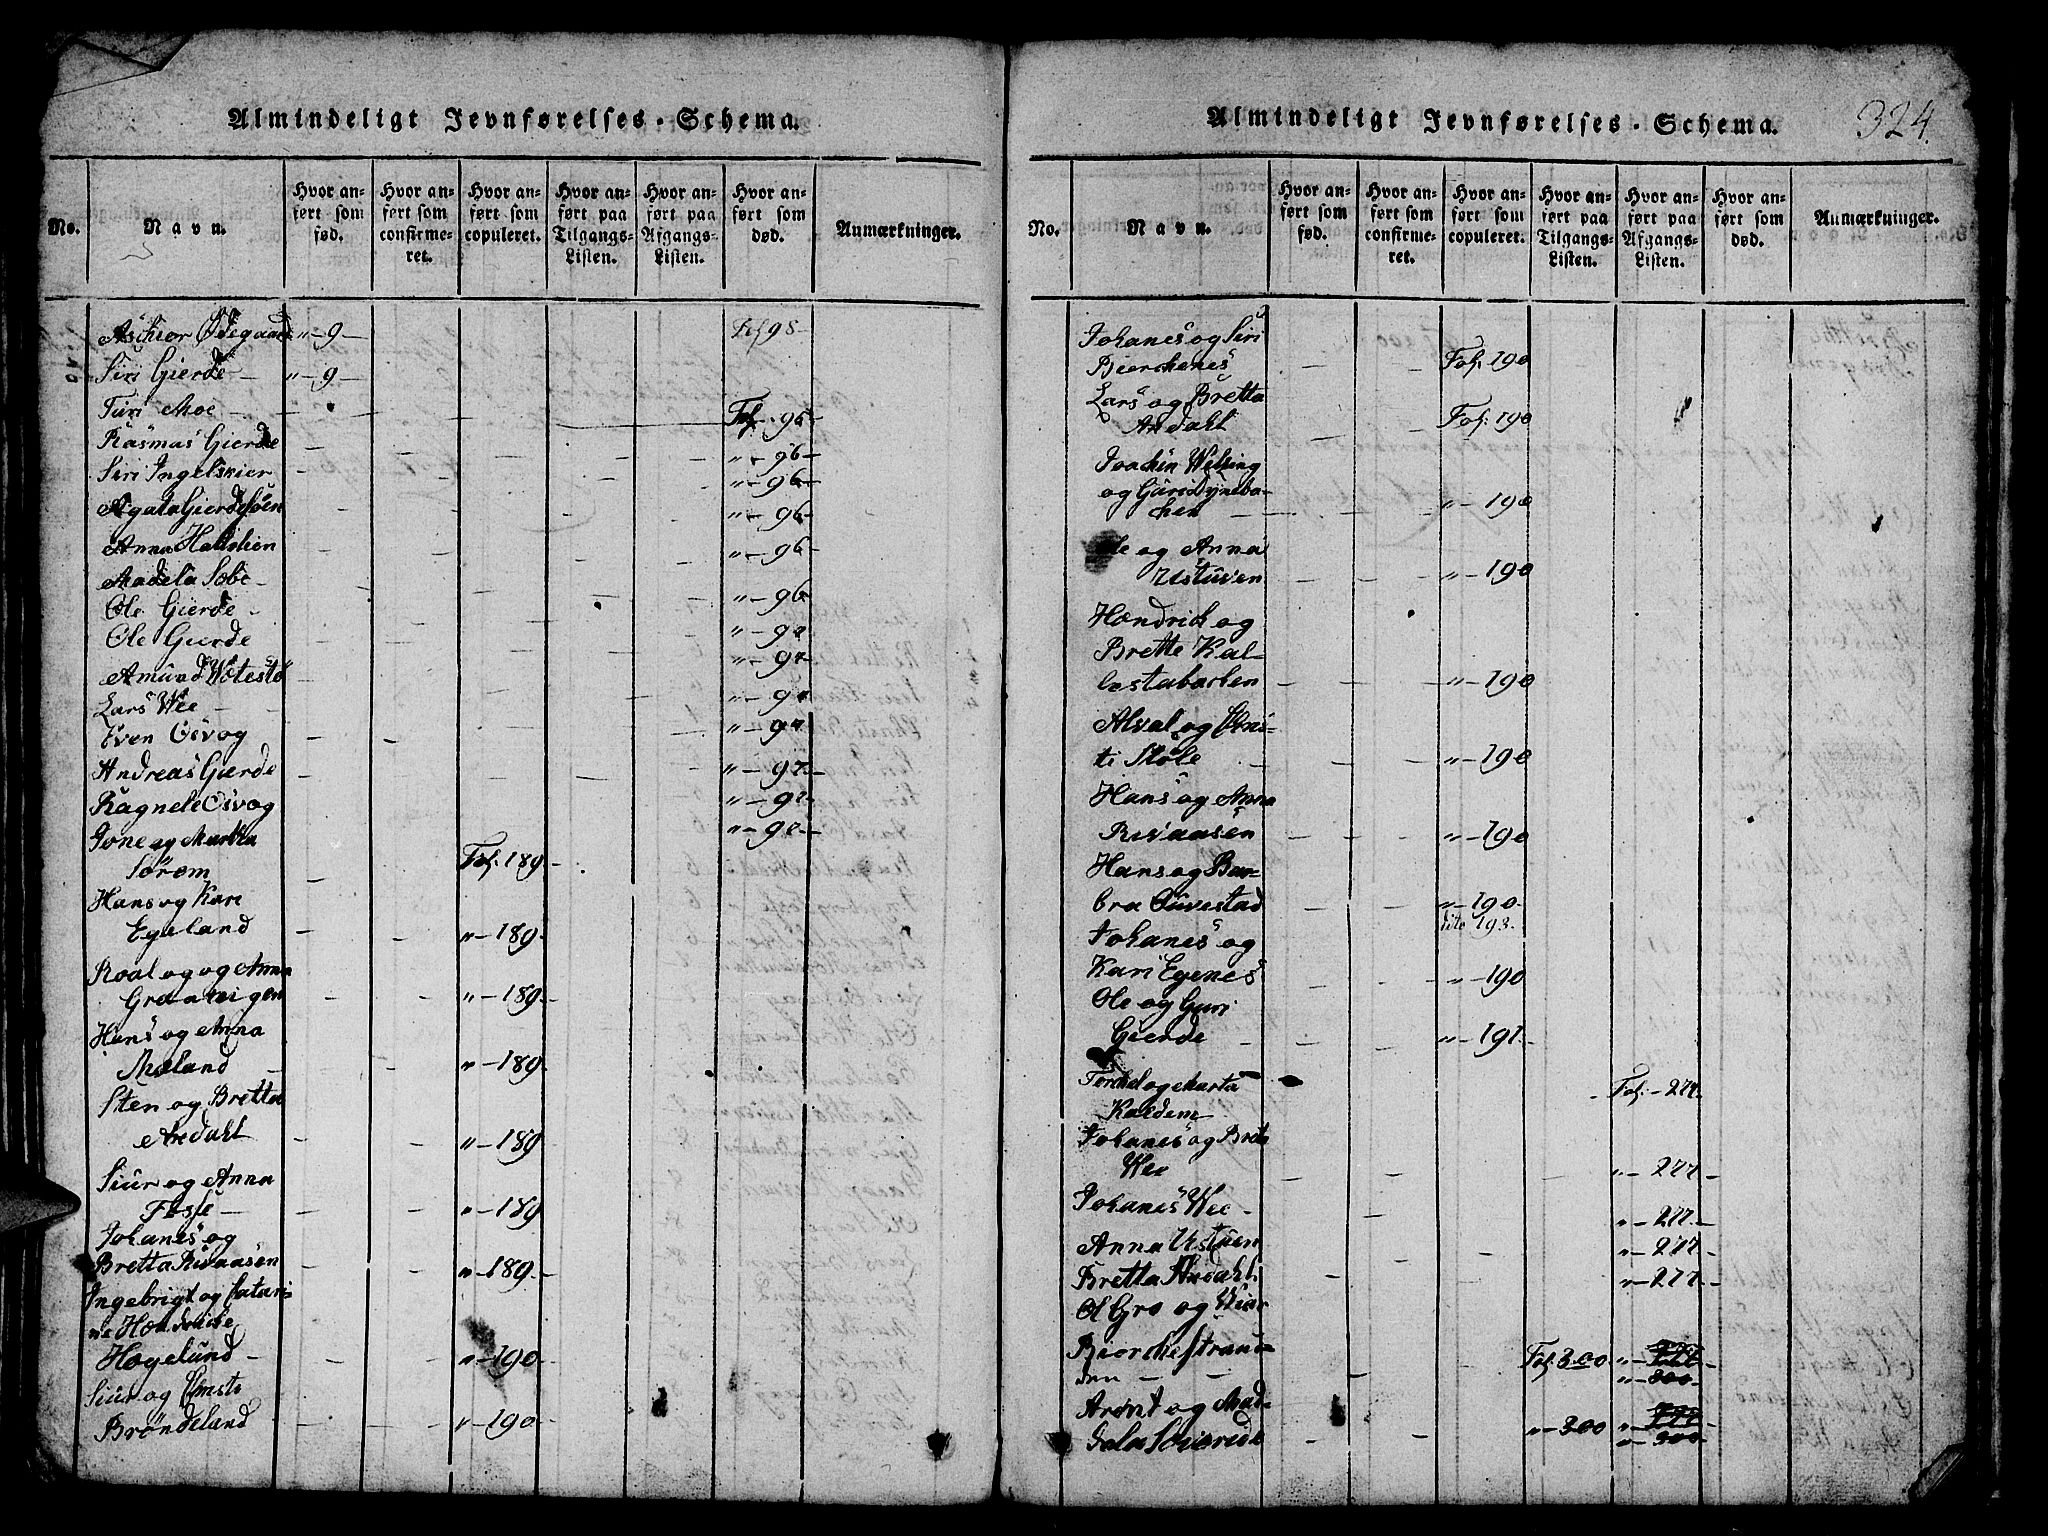 Almindeligt Jevnførelses-Schema.
No.
Navn.
Hvor an-
ført som
fød.
Hvor an-
ført som
confirme-
ret.
Hvor an-
ført som
copuleret.
Hvor an-
ført paa
Tilgangs-
Listen.
Hvor an-
ført paa
Afgangs-
Listen.
Hvor an-
ført som
død.
Anmærkninger.
Ødegaard " - 9 - Fol 95 -
Siri Gierde - " - 9 -
Turi Moe - Fol - 96 -
Rasmus Gierde - " - 96 -
Siri Ingelskier - " - 96 -
Agata Gierdesøen - " - 96 -
Anna - " - 96
Madela Søbe - " - 96
Ole Gierde - " - 97
Ole Gierde " - 97
Amund - " - 97
Lars Wee - " - 97
Even Osvog
Andreas Gierde - " - 97 -
Ragnele Osvog " - 97 -
Jone og Martha " - 97 -
Sørem - Fol. 189 -
Hans og Kari
Egeland - " - 189 -
Roal og og Anna
- " - 189 -
Hans og Anna
Mæland - " - 189
Sten og Bretta
Ardahl - " - 189
Siur og Anna
- " - 189
Johanes og
Bretta Risaasen - " - 189 -
Ingebrigt og Catari-
ne Hendriche
Hogelund - " - 190
Siur og
Brøndeland - " - 190
Almindeligt Jevnførelses-Schema. 324.
No.
Navn.
Hvor an-
ført som
fød.
Hvor an-
ført som
confirme-
ret.
Hvor an-
ført som
copuleret.
Hvor an-
ført paa
Tilgangs-
Listen.
Hvor an-
ført paa
Afgangs-
Listen.
Hvor an-
ført som
død.
Anmærkninger.
Johanes og Siri
Bierchenes - Fol. 190
Lars og Bretta
Andahl - Fol: 190
Joachin Welsing
og
- " - 190
Ole og Anna
Ustuven - " - 190
Hendrich og
Brette Kal-
lestabacken - " - 190
Alval og
ti Støle - " - 190
Hans og Anna
Risaasen - " - 190
Hans og Bar-
bra - " - 190
Johanes og dito 193.
Kari Egenes " - 190
Ole og Guri
Gierde - " - 191 -
Torchel og Marta
Kaldem - Fol. - 277
Johanes og Brette
Wee " - 277 -
Johanes Wee - " - 277 -
Anna Ustuen - " - 277
Bretta Andahl - " - 277 -
Ol Gro og
Bierchestran-
den - Fol. 300 " - 277 -
" - 300 -
Arønt og Mad-
dala - " - 300 " - 277 -
" - 300 -